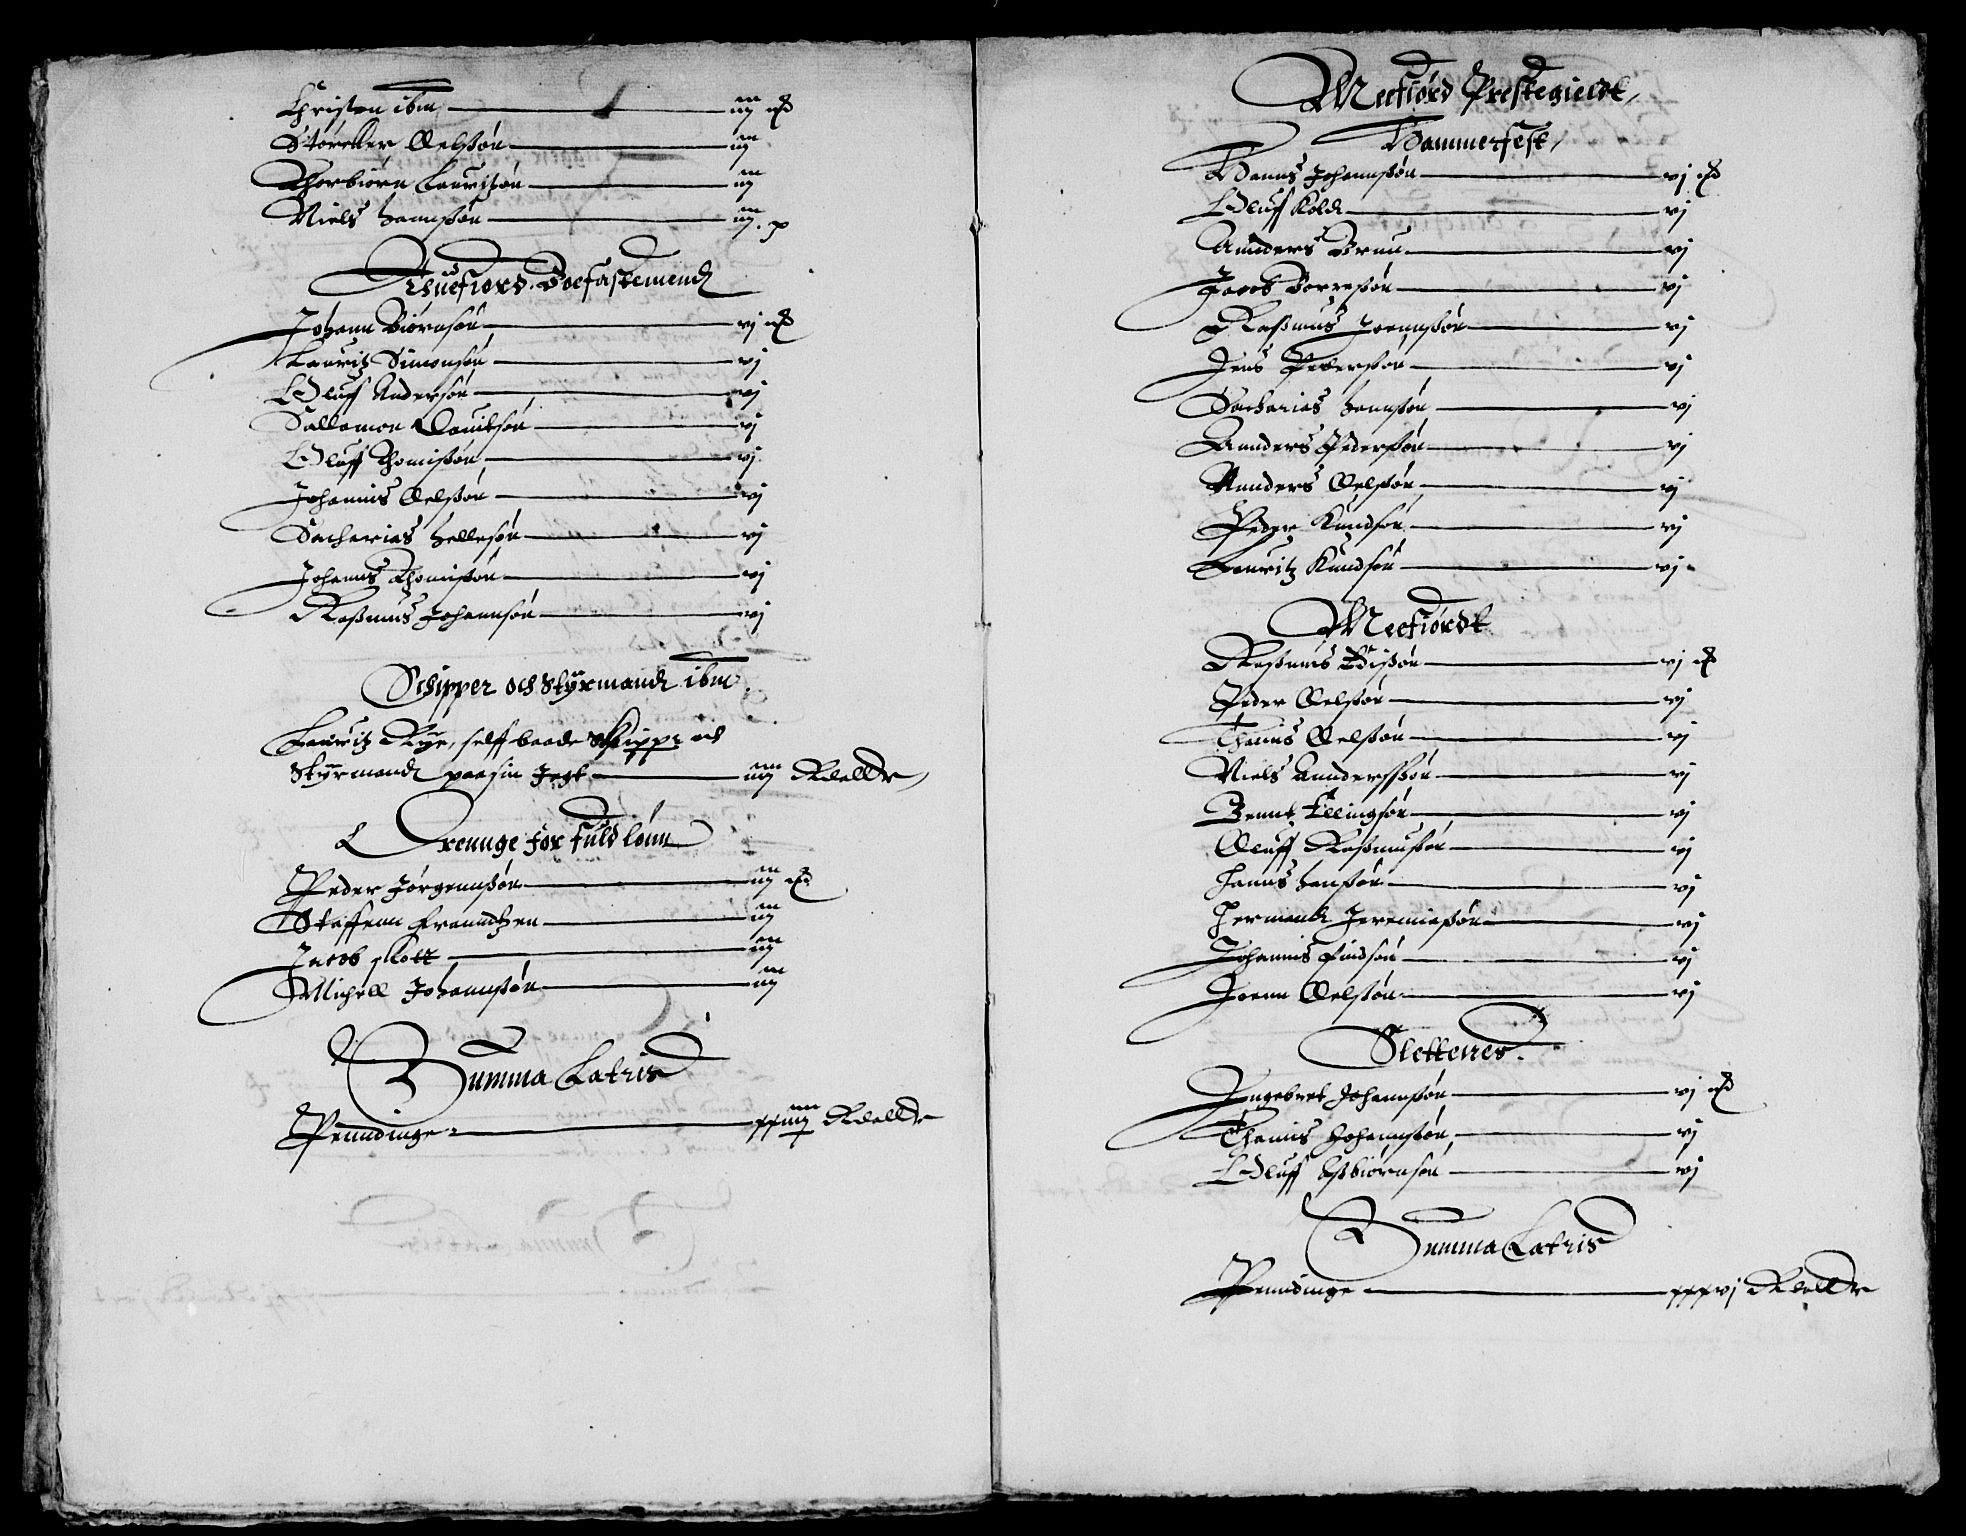 Christen ibm iij ort
Storcker Oelssøn iij
Thorbiørn Lauritzøn iij
Niels Hannssøn iij
Thuefiord Boefastemend
Johann Biørnsøn vj ort
Lauritz Simonsøn vj
Oluff Andersøn vj
Sallomon Dauitsøn vj
Oluff Thomissøn vj
Johannis Oelssøn vj
Sacharias Hellesøn vj
Johannis Thomissøn vj
Rassmus Johannsøn vj
Schipper och Styrmand ibm
Lauritz Rye, self baade Skipper och
Styrmand paa sin Jegt iiij Rdlr
Drennge for fuld lønn
Peder Jørgennssøn iij ort
Staffenn Franndtzen iij
Jacob Skott iij
Michell Johannssøn iij
Summa Lateris
Penndinge xxiiij Rdlr
Meefiord Prestegieldt
Hammerfest
Hanns Johannssøn vj ort
Oluf Kold vj
Annders Brun vj
Jacob Borressøn vj
Rassmus Joennssøn vj
Jens Pederssøn vj
Sacharias Hannssøn vj
Annders Pederssøn vj
Annders Oelssøn vj
Peder Knudsøn vj
Lauritz Knudsøn vj
Meefiordt
Rassmus Edissøn vj ort
Peder Oelssøn vj
Hanns Oelssøn vj
Niels Annderssøn vj
Bennt Ellingsøn vj
Oluff Rassmussøn vj
Hanns Hanssøn vj
Hermand Jeremiassøn vj
Johannis Findsøn vj
Joenn Oelssøn vj
Slettenes
Ingebret Johannssøn vj ort
Hannis Johannssøn vj
Oluff Assbiørnsøn vj
Summa Lateris
Penndinge xxxvj Rdlr